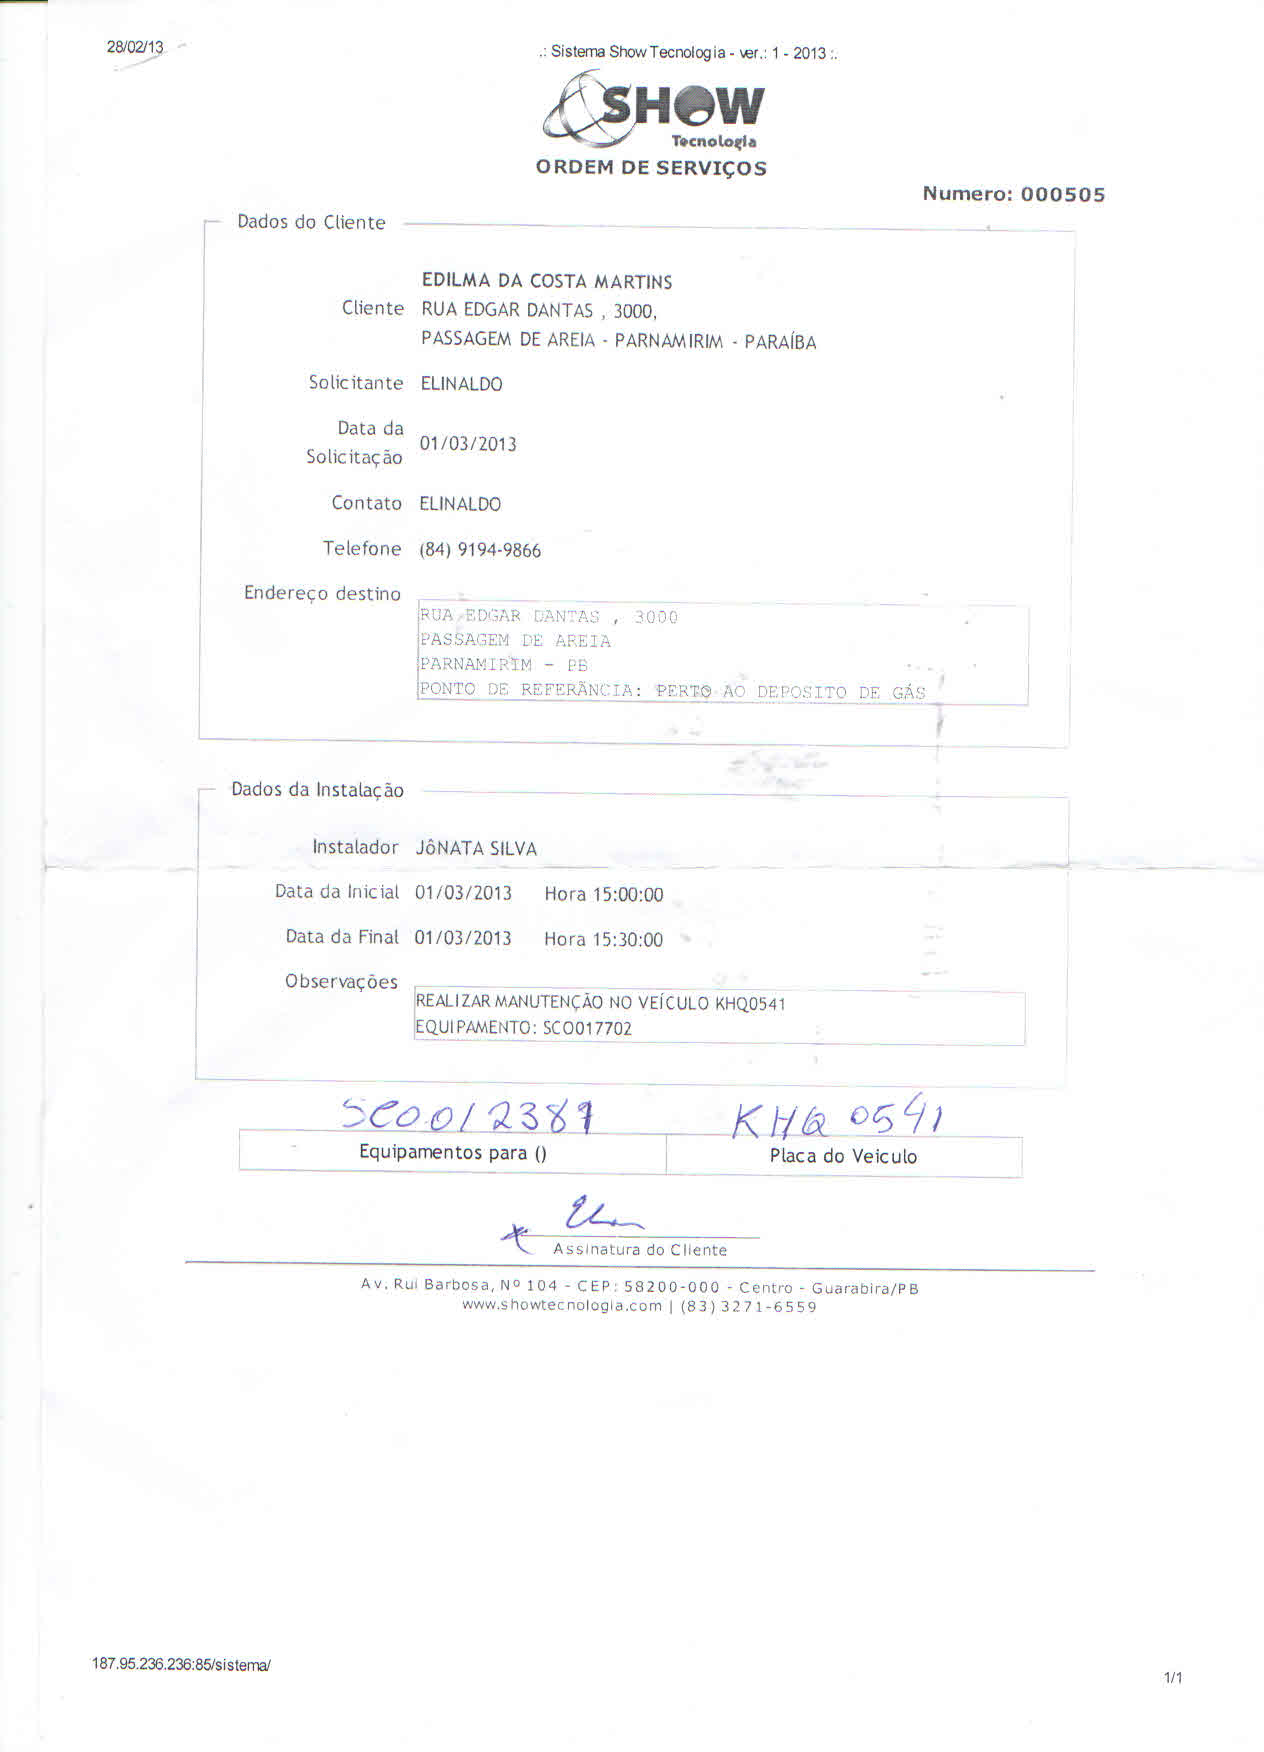 28/02/13
.: Sistema Show Tecnologia - ver.: 1 - 2013 :.
SHOW
Tecnologia
ORDEM DE SERVIÇOS
Numero: 000505
Dados do Cliente
EDILMA DA COSTA MARTINS
Cliente RUA EDGAR DANTAS , 3000,
PASSAGEM DE AREIA - PARNAMIRIM - PARAÍBA
Solicitante ELINALDO
Data da Solicitação 01/03/2013
Contato ELINALDO
Telefone (84) 9194-9866
Endereço destino
RUA EDGAR DANTAS , 3000
PASSAGEM DE AREIA
PARNAMIRIM - PB
PONTO DE REFERÃNCIA: PERTO AO DEPOSITO DE GÁS
Dados da Instalação
Instalador JôNATA SILVA
Data da Inicial 01/03/2013 Hora 15:00:00
Data da Final 01/03/2013 Hora 15:30:00
Observações
REALIZAR MANUTENÇÃO NO VEÍCULO KHQ0541
EQUIPAMENTO: SCO017702
KHQ 0541
Equipamentos para () Placa do Veiculo
Assinatura do Cliente
Av. Rui Barbosa, Nº 104 - CEP: 58200-000 - Centro - Guarabira/PB
www.showtecnologia.com | (83) 3271-6559
187.95.236.236:85/sistema/
1/1